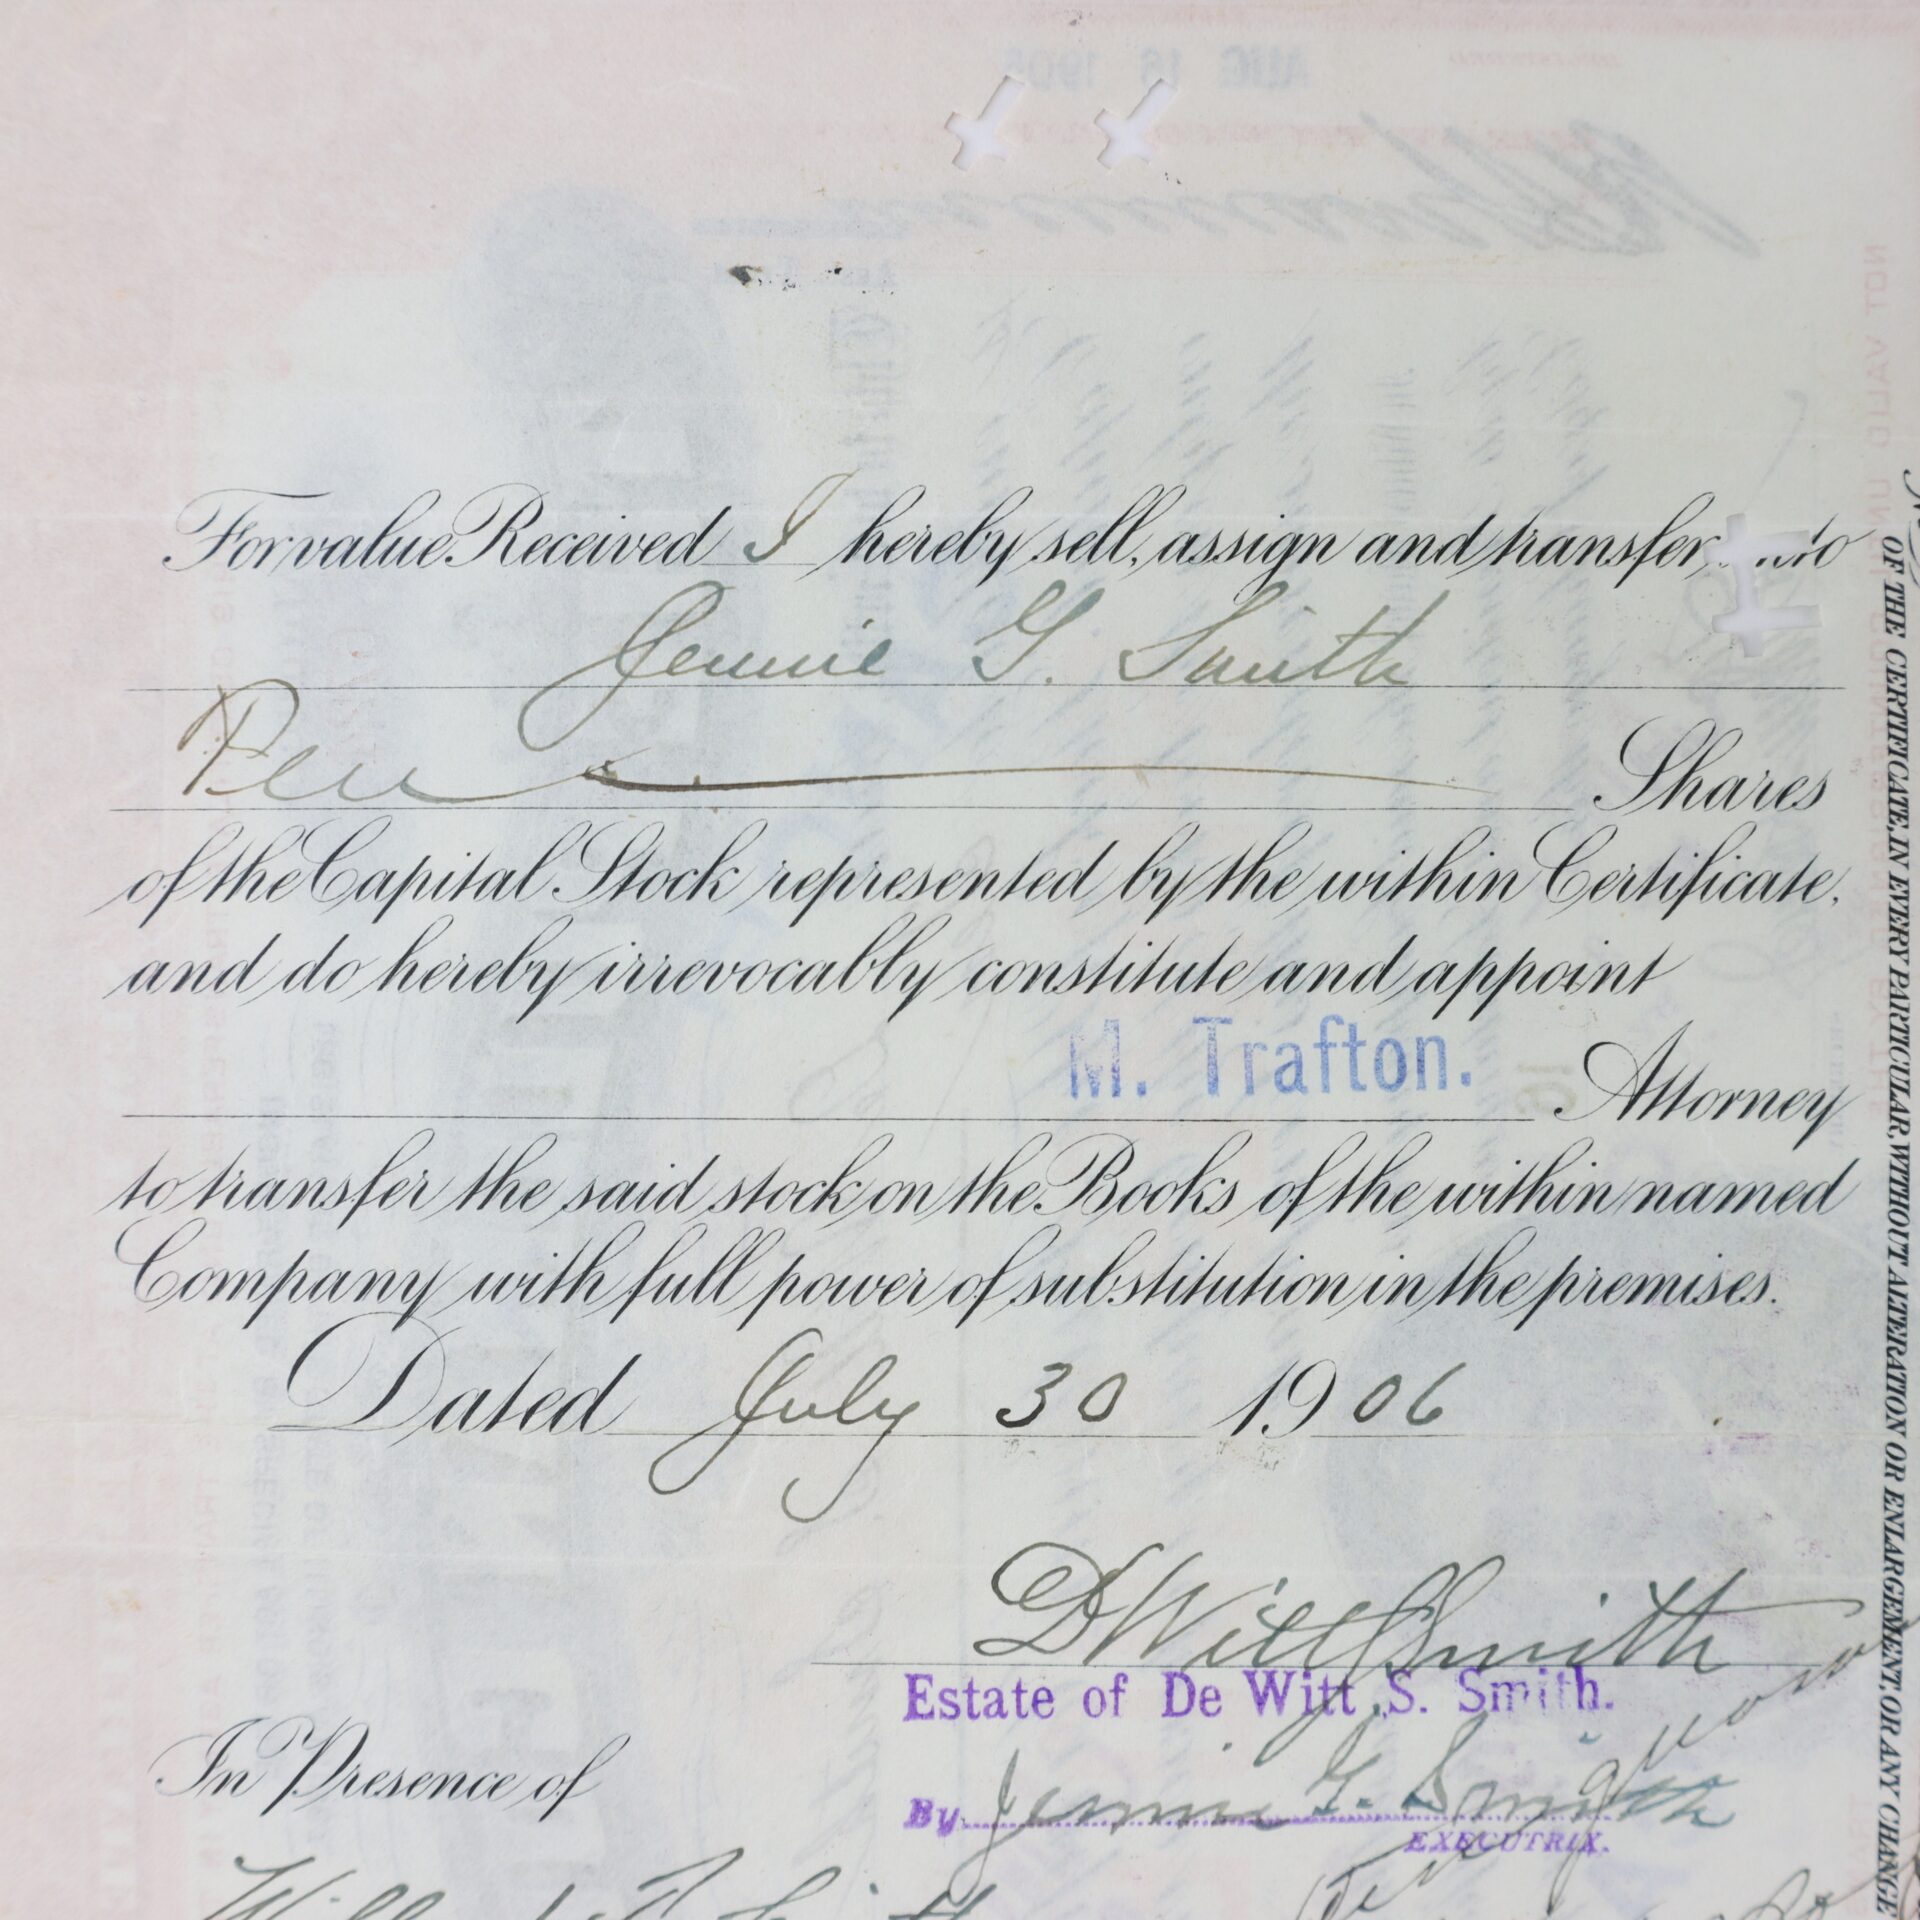 For value Received I hereby sell, assign and transfer unto
Jennie G. Smith
Ten Shares
of the Capital Stock represented by the within Certificate,
and do hereby irrevocably constitute and appoint
M. Trafton. Attorney
to transfer the said stock on the Books of the within named
Company with full power of substitution in the premises.
Dated July 30 1906
DWitt S Smith
Estate of De Witt S. Smith.
In Presence of
By Jennie G. Smith
EXECUTRIX.
OF THE CERTIFICATE, IN EVERY PARTICULAR, WITHOUT ALTERATION OR ENLARGEMENT, OR ANY CHANGE